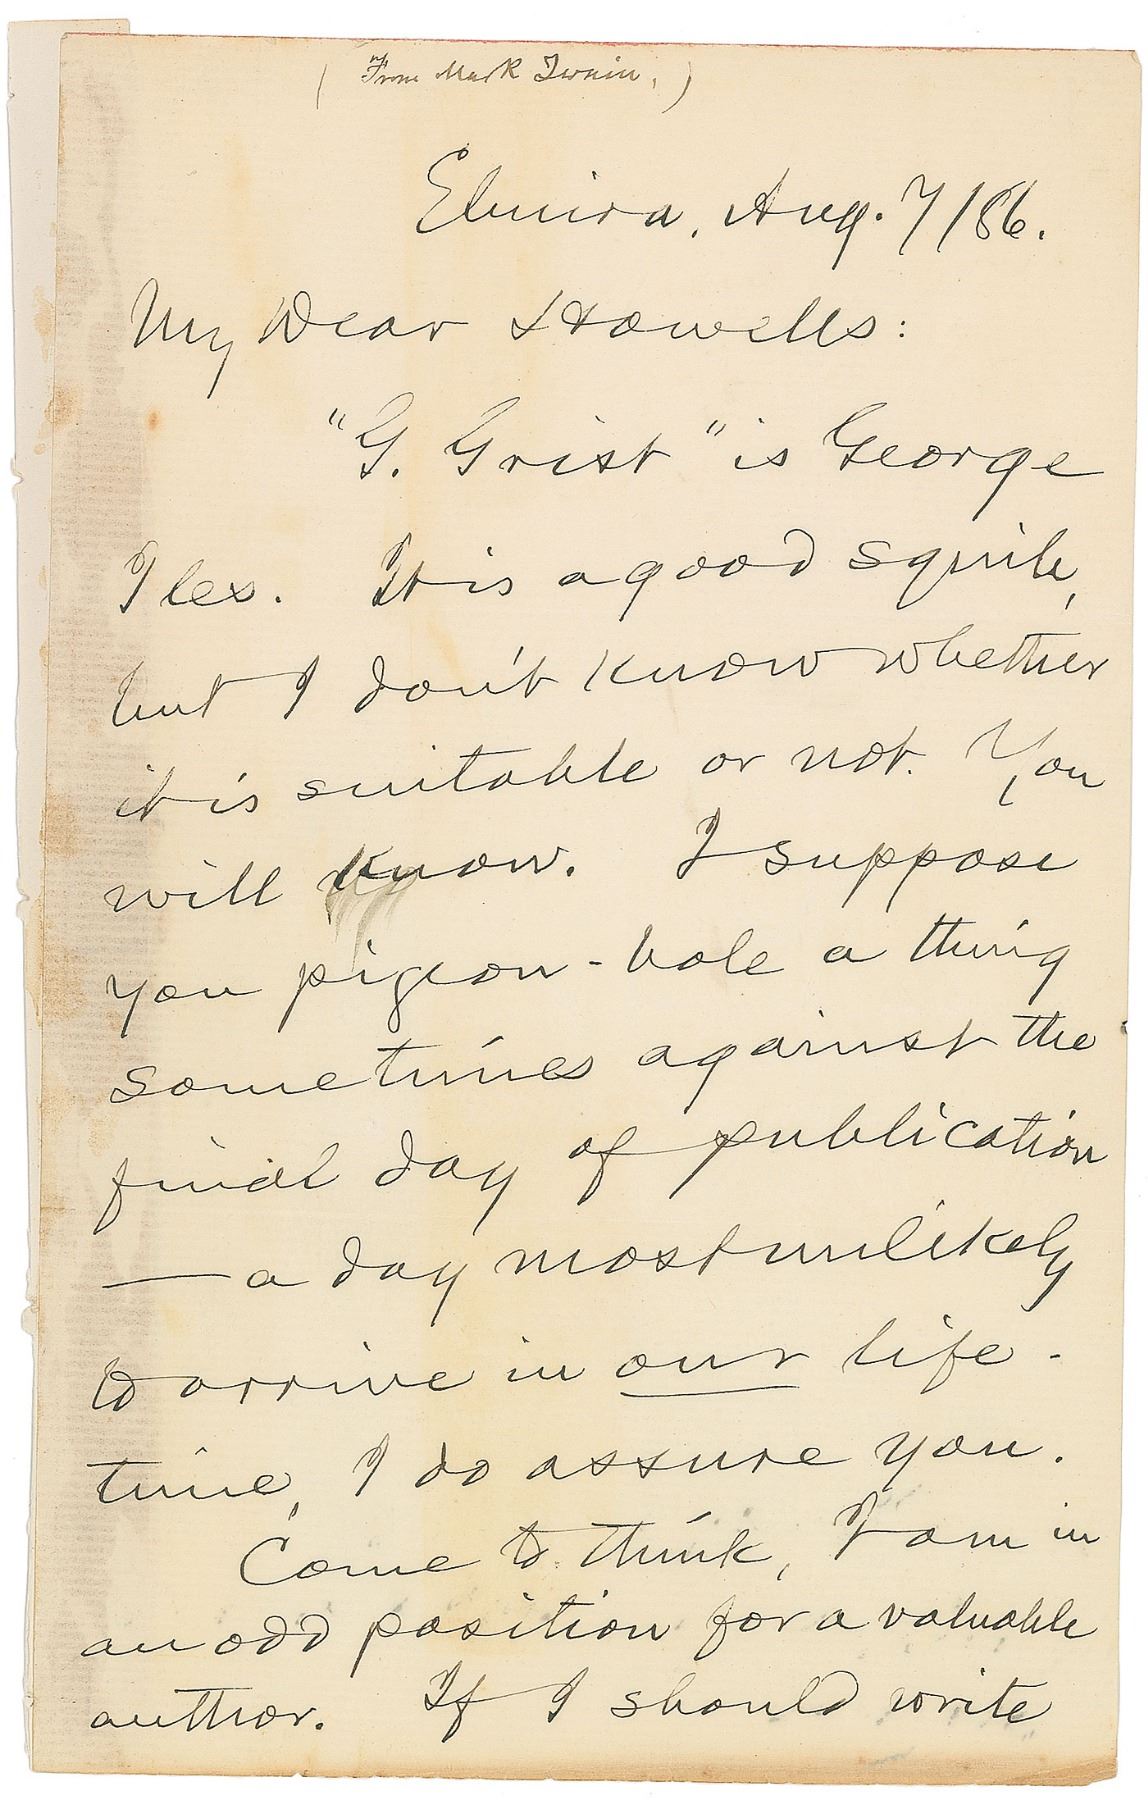 ( From Mark Twain. )
Elmira, Aug. 7/86.
My Dear Howells:
"G. Grist" is George
Iles. It is a good squib,
but I don't know whether
it is suitable or not. You
will know. I suppose
you pigeon-hole a thing
sometimes against the
final day of publication
— a day most unlikely
to arrive in our life-
time, I do assure you.
Come to think, I am in
an odd position for a valuable
author. If I should write